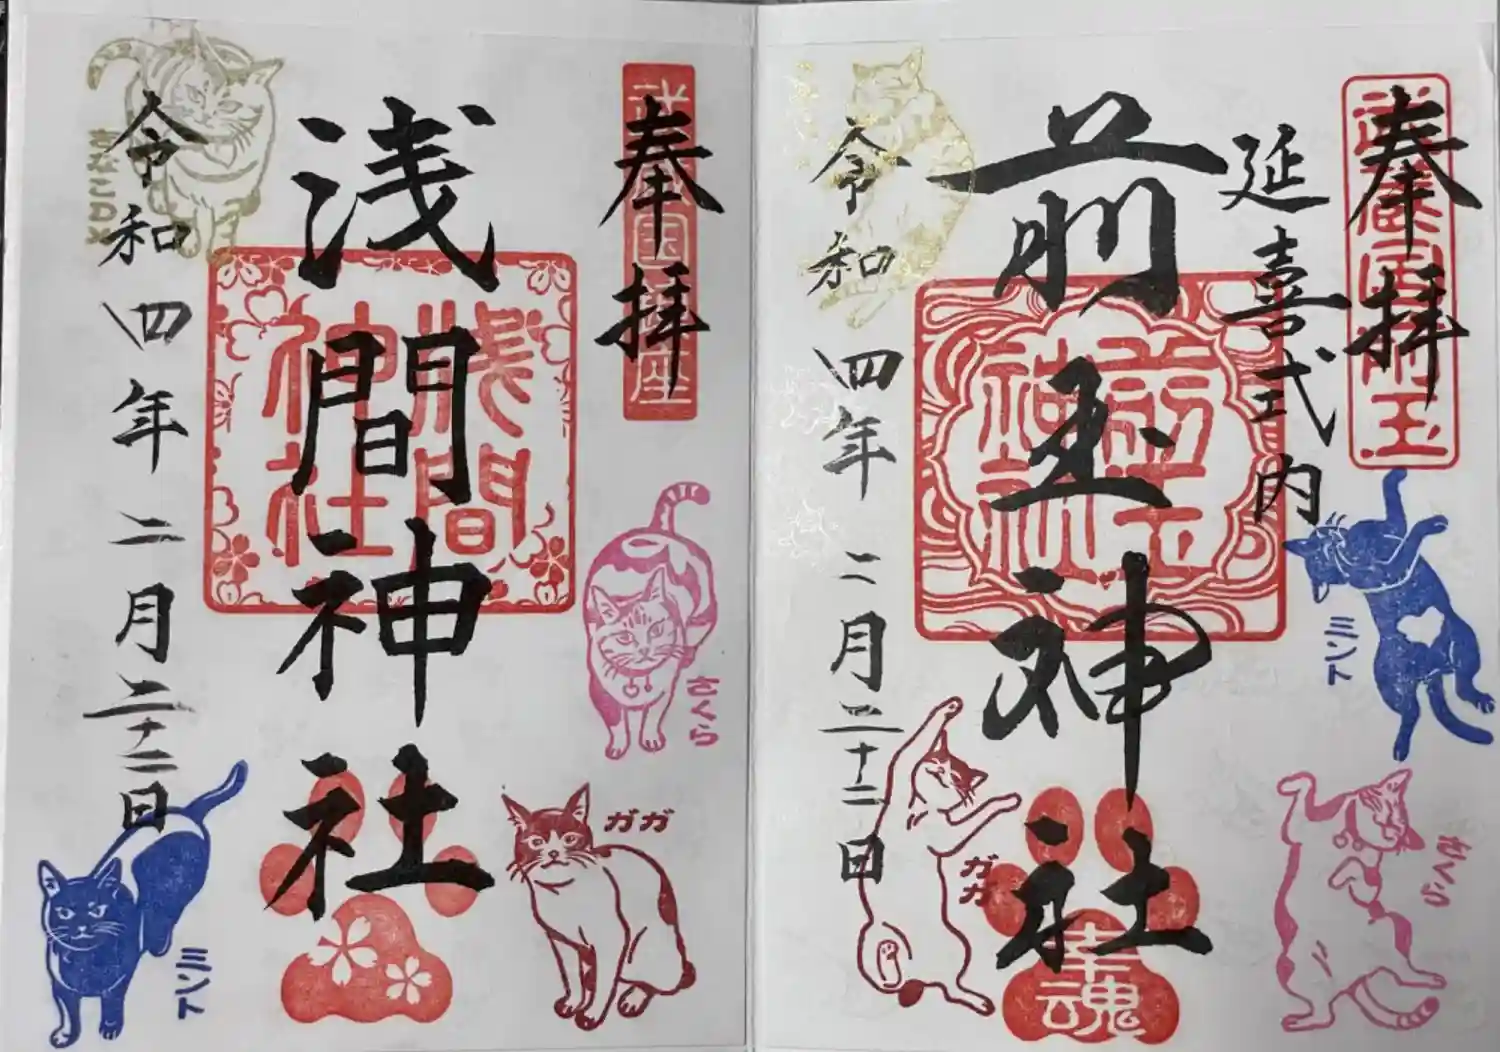 奉拝
延喜式内
前玉神社
令和四年二月二十二日
前玉神社
幸魂
ミント
ガガ
さくら
奉拝
浅間神社
令和四年二月二十二日
浅間神社
さくら
ガガ
ミント
きなこ